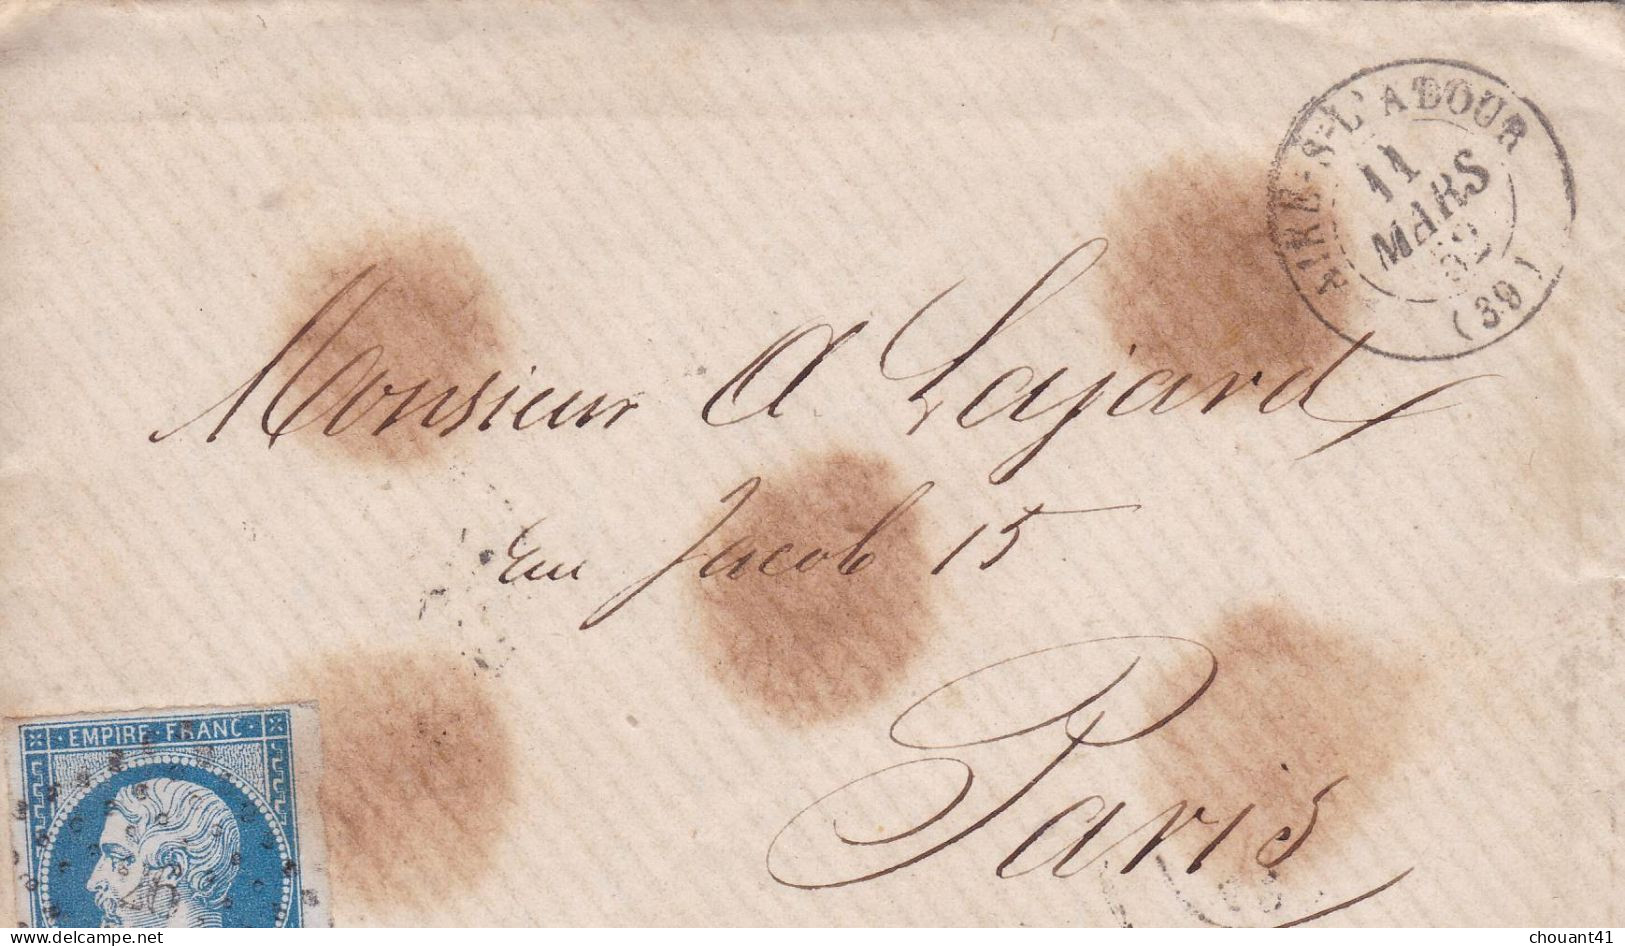 AIRE-S-L'ADOUR
11
MARS
62
(39)
Monsieur A Lajard
rue Jacob 15
Paris
EMPIRE FRANC
26
www.delcampe.net
chouant41